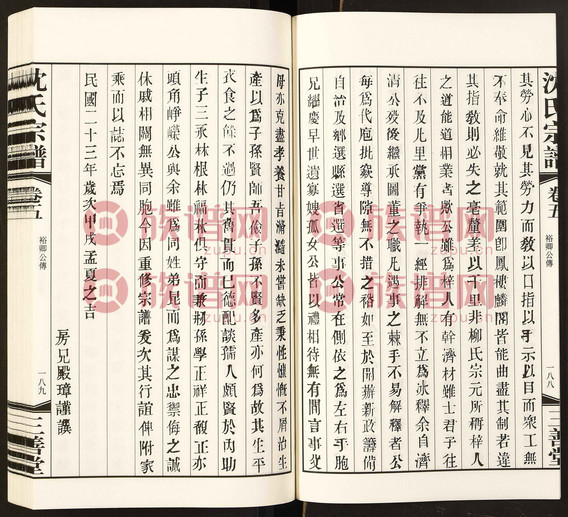 沈氏宗譜
卷五
裕卿公傳
一八八
三善堂
其勞心不見其勞力而敎以口指以手示以目而衆工無
不奉命維敬就其範圍卽鳳樓麟閣皆能曲盡其制若違
其指敎則必失之毫釐差以千里非柳氏宗元所稱梓人
之道能通相業者歟公雖爲梓人有幹濟材雖士君子或
往不及凡里黨有爭執一經排解無不立爲冰釋余自濟
清公歿後繼承圖董之職凡遇事之棘手不易解釋者公
每爲代庖批竅導窾無不措之裕如至於開辦新政籌備
自治及鄉選縣選省選等事公常在側依之爲左右手胞
兄繼慶早世遺寡嫂孤女公皆以禮相待無有閒言事父
母亦克盡孝養甘旨滫瀡未嘗缺乏秉性慷慨不屑治生
產以爲子孫賢師吾儉子孫不賢多產亦何爲故其生平
衣食之餘不過仍其舊貫而已德配談孺人頗賢於內助
生子三永林根林福林俱守而兼刱孫學正祥正馥正亦
頭角崢嶸公與余雖爲同姓弟昆而爲謀之忠禦侮之誠
休戚相關無異同胞今因重修宗譜爰次其行誼俾附家
乘而以誌不忘焉
民國二十三年歲次甲戌孟夏之吉
房兄殿璋謹譔
沈氏宗譜
卷五
裕卿公傳
一八九
三善堂
族谱网
zupu.cn